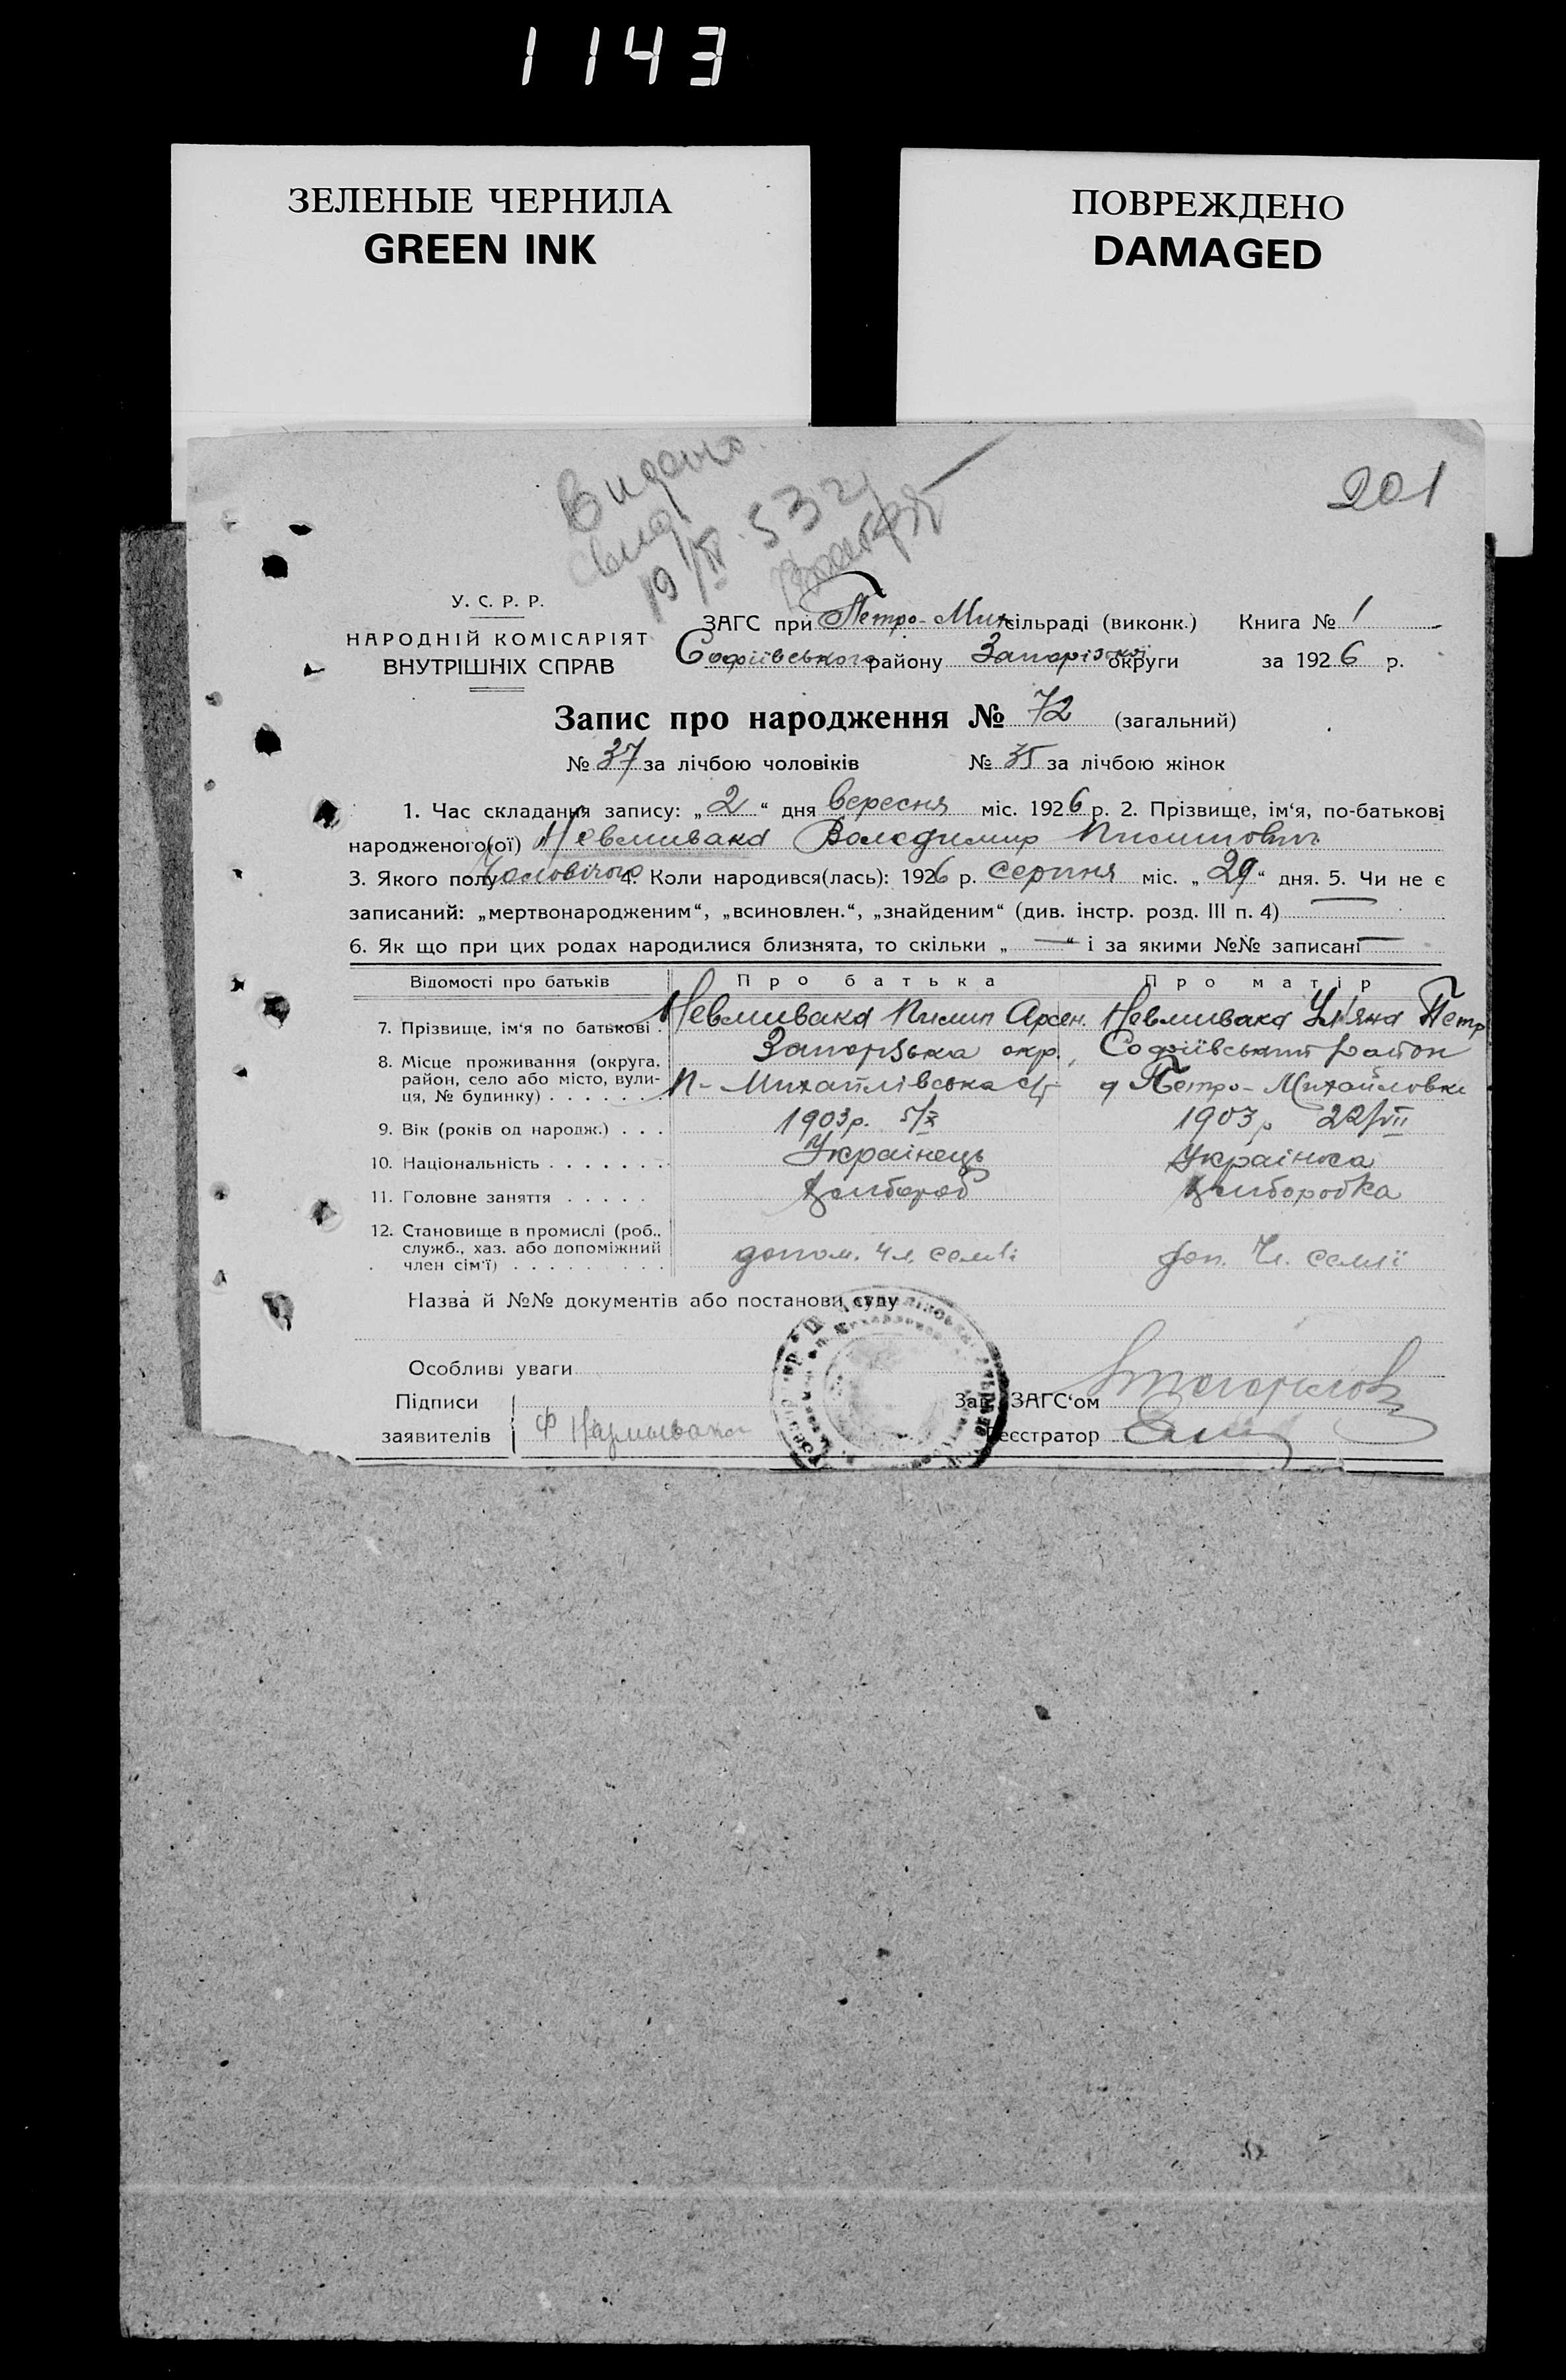 1143
ЗЕЛЕНЫЕ ЧЕРНИЛА
GREEN INK
ПОВРЕЖДЕНО
DAMAGED
Видано
201
У. С. Р. Р.
НАРОДНІЙ КОМІСАРІЯТ
ВНУТРІШНІХ СПРАВ
ЗАГС при Петро-Мих сільраді (виконк.) Книга № 1
Софіївського району Запорізької округи за 1926 р.
Запис про народження № 72 (загальний)
№ 37 за лічбою чоловіків № 35 за лічбою жінок
1. Час складання запису: „2“ дня вересня міс. 1926 р. 2. Прізвище, ім‘я, по-батькові
народженого(ої) Невмивака Володимир Пилипович
3. Якого полу Чоловічого 4. Коли народився(лась): 1926 р. серпня міс. „29“ дня. 5. Чи не є
записаний: „мертвонародженим“, „всиновлен.“, „знайденим“ (див. інстр. розд. III п. 4) —
6. Як що при цих родах народилися близнята, то скільки „—“ і за якими №№ записані —
Відомості про батьків Про батька Про матір
7. Прізвище, ім‘я по батькові . Невмивака Пилип Арсен. Невмивака Ул‘яна Петр
8. Місце проживання (округа, район, село або місто, вулиця, № будинку) . . . . . .
Запорізька окр., Софіївський район
П-Михайлівська с/г Петро-Михайловке
9. Вік (років од народж.) . . . 1903р. 5/X 1903р 22/VII
10. Національність . . . . . . . Українець Українка
11. Головне заняття . . . . . Хлібороб Хлiборобка
12. Становище в промислі (роб., служб., хаз. або допоміжний член сім‘ї) . . . . . . . . .
допом. чл. семі доп. Чл. семлї
Назва й №№ документів або постанови суду
Особливі уваги
Підписи
заявителів
Ф
Зав. ЗАГС‘ом
Реєстратор